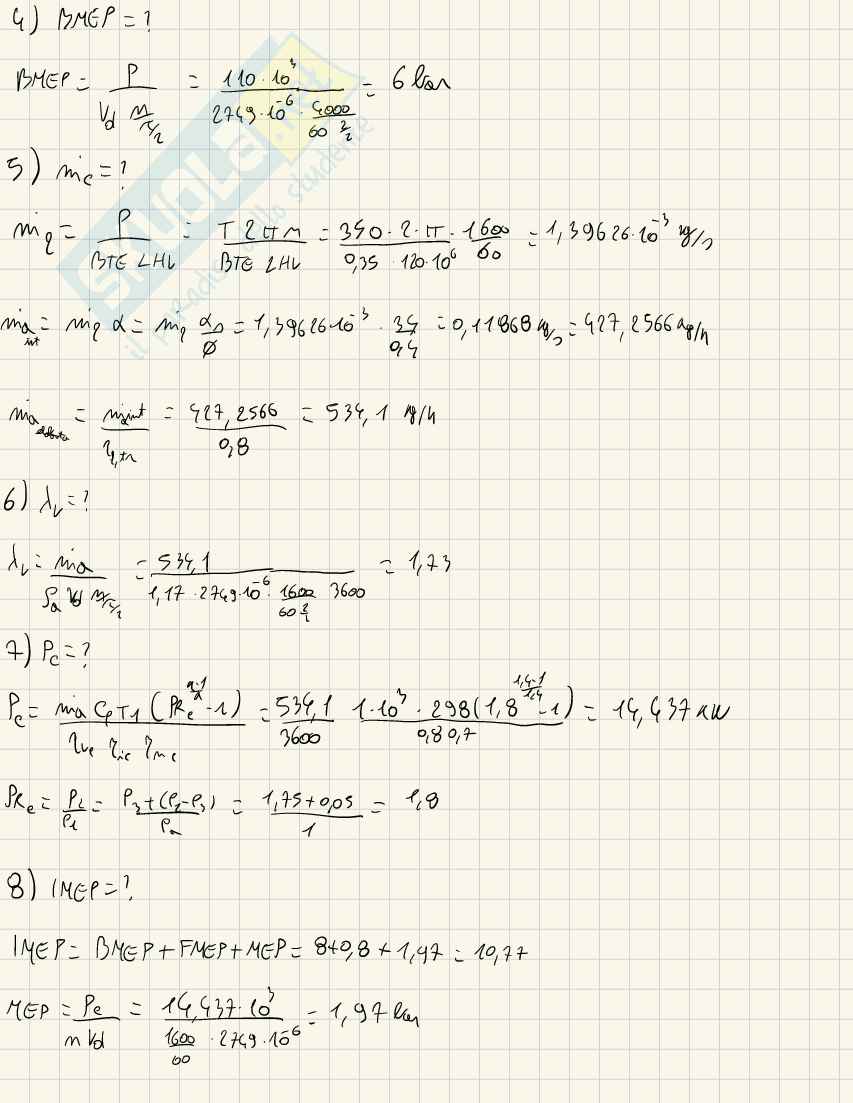 4) BMEP = ?
BMEP = P / (Vd n/(τ/2)) = 110·10³ / (2749·10⁻⁶ · 4000/(60 2/2)) = 6 bar
5) ṁc = ?
ṁf = P / (BTE LHV) = T 2πn / (BTE LHV) = 350·2·π·1600/60 / (0,35 · 120·10⁶) = 1,39626·10⁻³ kg/s
ṁa int = ṁf α = ṁf αs/φ = 1,39626·10⁻³ · 34/0,4 = 0,11868 kg/s = 427,2566 kg/h
ṁa = ṁa int / η,tr = 427,2566 / 0,8 = 534,1 kg/h
6) λv = ?
λv = ṁa / (ρa Vd n/(τ/2)) = 534,1 / (1,17 · 2749·10⁻⁶ · 1600/(60 2/2) 3600) = 1,73
7) Pc = ?
Pc = ṁa Cp T1 (PRc^((k-1)/k) - 1) / (ηvc ηic ηmc) = 534,1/3600 1·10³ · 298 (1,8^((1,4-1)/1,4) - 1) / (0,8 0,7) = 14,437 kW
PRc = P2/P1 = P3+(P2-P3) / Pa = 1,75+0,05 / 1 = 1,8
8) IMEP = ?
IMEP = BMEP + FMEP + MEP = 8+0,8+1,97 = 10,77
MEP = Pc / (n Vd) = 14,437·10³ / (1600/60 · 2749·10⁻⁶) = 1,97 bar
SKUOLA.net
il paradiso dello studente